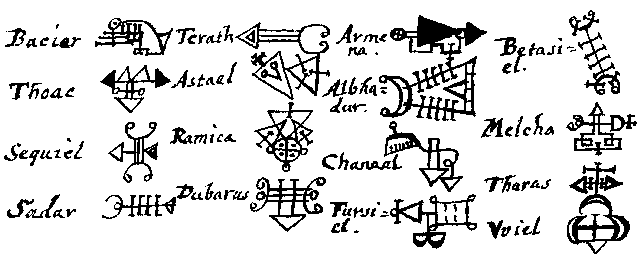 Baciar
Thoac
Sequiel
Sadar
Terath
Astael
Ramica
Dubarus
Arme
na.
Albha=
dur.
Chanaal
Fursi-
el.
Betasi=
el.
Melcha
Tharas
Vriel